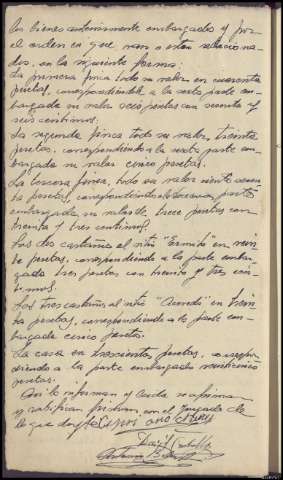 los bienes anteriormente embargados y por
el orden en que van o estan relaciona-
dos, en la siguiente forma:
La primera finca todo su valor en cuarenta
pesetas, correspondiendole a la sexta parte em-
bargada su valor seis pesetas con sesenta y
seis centimos.
La segunda finca todo su valor, treinta
pesetas, correspondiendo a la sexta parte em-
bargada su valor cinco pesetas.
La tercera finca, todo su valor ciento
ta pesetas, correspondiendo a la parte
embargada su valor de trece pesetas con
treinta y tres centimos.
Los dos castaños al sitio "Ermita" en vein-
te pesetas, correspondiendo a la parte embar-
gada tres pesetas con treinta y tres cen-
timos.
Los tres castaños al sitio en trein-
ta pesetas, correspondiendo a la parte em-
bargada cinco pesetas.
La casa en trescientas pesetas, correspon-
diendo a la parte embargada
pesetas.
Asi lo informan y leida se afirman
y ratifican firman con el Juzgado de
lo que doy fe